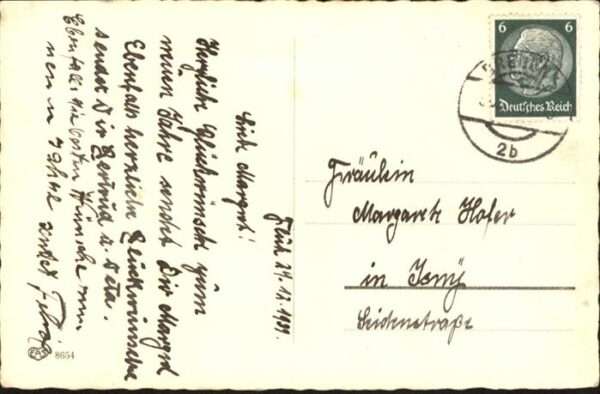 Liebe Margret!
Herzliche Glückwünsche zum
neuen Jahre sendet Dir Margret
Ebenfalls herzliche Glückwünsche
sendet Dir Gertrud u. Beta.
Ebenfalls die besten Wünsche zum
neuen Jahre sendet
6 6
Deutsches Reich
2b
Fräulein
Margarete Hofer
in Isny
Seidenstraße
8654